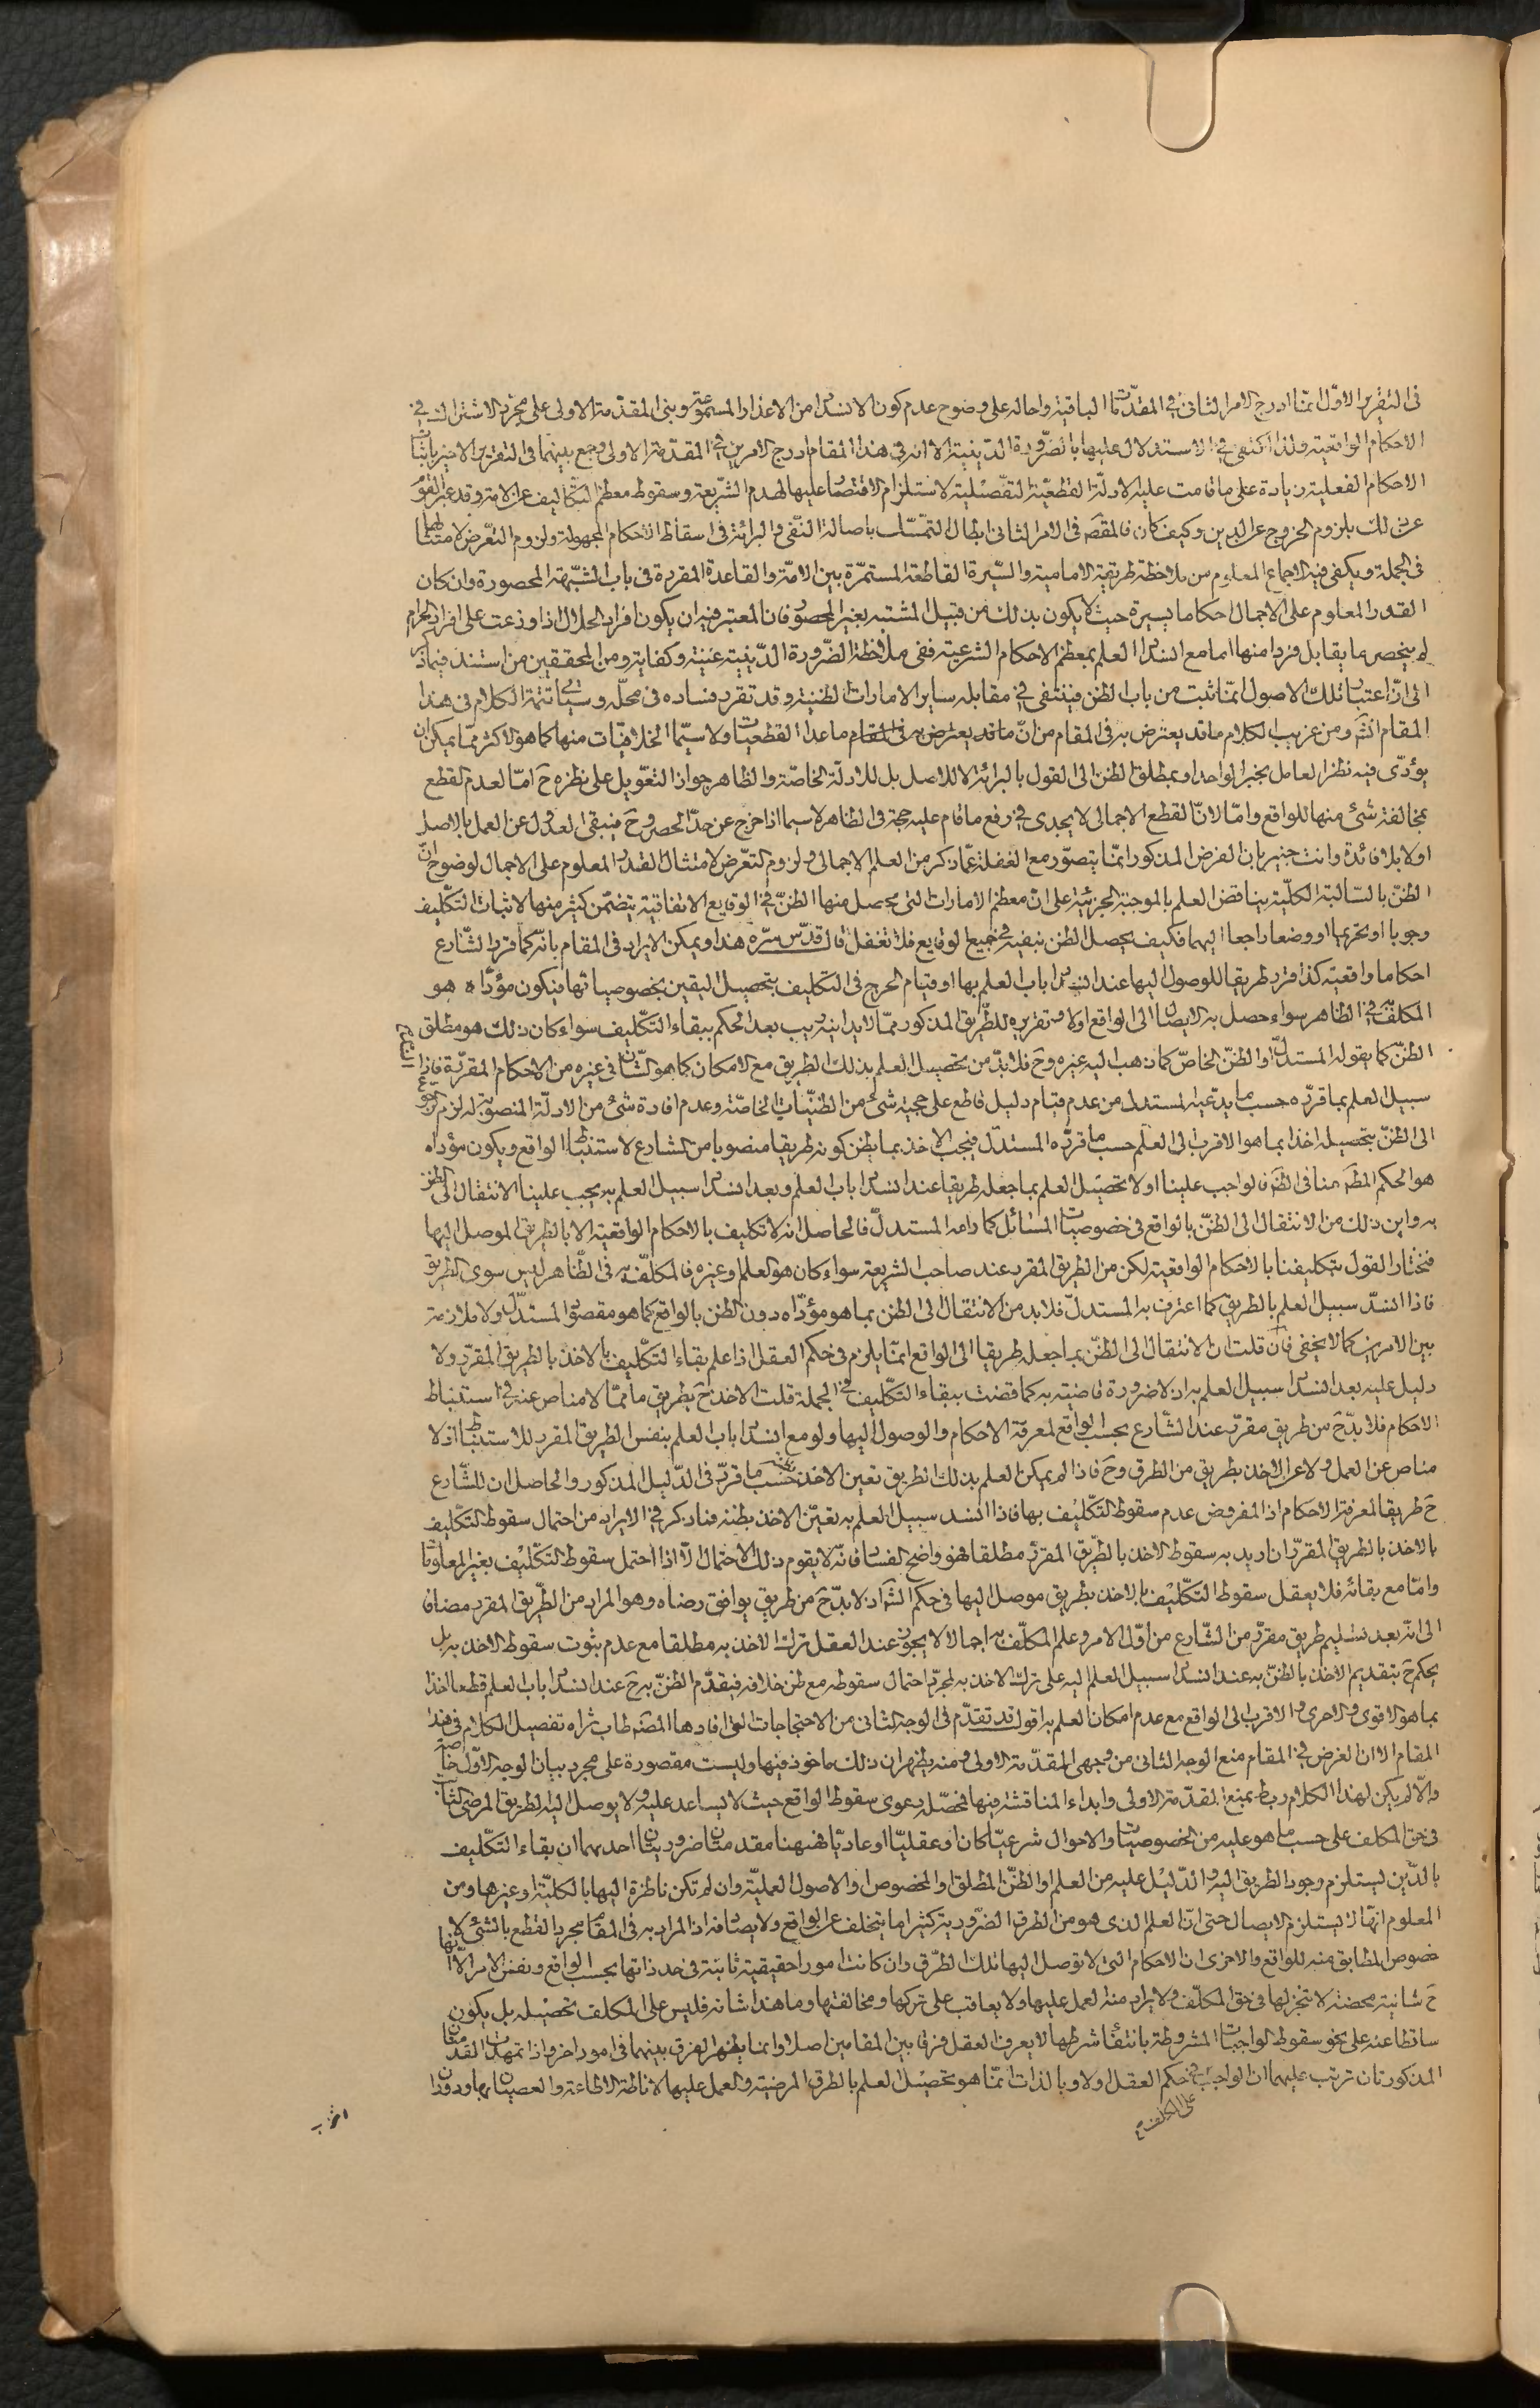 في التقرير الاول انما ادرج الامر الثاني في المقدمات الباقية واحاله على وضوح عدم كون الانسداد من الاعذار المسموعة وبنى المقدمة الاولى على مجرد الاشتراك في
الاحكام الواقعية ولذا اكتفى في الاستدلال عليها بالضرورة الدينية الا انه في هذا المقام ادرج الامرين في المقدمة الاولى وجمع بينهما في التقرير الاخير باثبات
الاحكام الفعلية زيادة على ما قامت عليه الادلة القطعية التفصيلية لاستلزام الاقتصار عليها لهدم الشريعة وسقوط معظم التكاليف عن الامة وقد عبر القوم
عن ذلك بلزوم الخروج عن الدين وكيف كان فالمقصد في الامر الثاني ابطال التمسك باصالة النفي والبرائة في اسقاط الاحكام المجهولة ولزوم التعرض لامتثالها
في الجملة ويكفي فيه الاجماع المعلوم من ملاحظة طريقة الامامية والسيرة القاطعة المستمرة بين الامة والقاعدة المقررة في باب الشبهة المحصورة وان كان
القدر المعلوم على الاجمال احكاما يسيرة حيث لا يكون بذلك من قبيل المشتبه بغير المحصور فان المعتبر فيه ان يكون افراد الحلال اذا وزعت على افراد الحرام
لم ينحصر ما يقابل فردا منها اما مع انسداد العلم بمعظم الاحكام الشرعية ففي ملاحظة الضرورة الدينية غنية وكفاية ومن المحققين من استند فيما ذكر
الى ان اعتبار تلك الاصول انما ثبت من باب الظن فينتفي في مقابلة ساير الامارات الظنية وقد تقرر فساده في محله وسياتي تتمة الكلام في هذا
المقام انش ومن غريب الكلام ما قد يعترض به في المقام من ان ما قد يعترض به في المقام ما عدا القطعيات ولا سيما الخلافيات منها كما هو الاكثر مما يمكن ان
يؤدي فيه نظر العامل بخبر الواحد او بمطلق الظن الى القول بالبرائة لا للاصل بل للادلة الخاصة والظاهر جواز التعويل على نظره ح اما لعدم القطع
بمخالفة شئ منها للواقع واما لان القطع الاجمالي لا يجدي في رفع ما قام عليه حجة في الظاهر لا سيما اذا خرج عن حد الحصر وح فيبقى العدول عن العمل بالاصل
اولا بلا فائدة وانت خبير بان الفرض المذكور انما يتصور مع الغفلة عما ذكر من العلم الاجمالي ولزوم التعرض لامتثال القدر المعلوم على الاجمال لوضوح ان
الظن بالسالبة الكلية يناقض العلم بالموجبة الجزئية على ان معظم الامارات التي يحصل منها الظن في الوقايع الاتفاقية يتضمن كثير منها لاثبات التكليف
وجوبا او تحريما او وضعا راجعا اليهما فكيف يحصل الظن بنفيه في جميع الوقايع فلا تغفل قال قدس سره هذا ويمكن الايراد في المقام بانه كما قرر الشارع
احكاما واقعية كذا قرر طريقا للوصول اليها عند انسداد باب العلم بها او قيام الحرج في التكليف بتحصيل اليقين بخصوصياتها فيكون مؤداه هو
المكلف به في الظاهر سواء حصل به الايصال الى الواقع اولا وتقريره للطريق المذكور مما لا يدانيه ريب بعد الحكم ببقاء التكليف سواء كان ذلك هو مطلق
الظن كما يقوله المستدل او الظن الخاص كما ذهب اليه غيره وح فلا بد من تحصيل العلم بذلك الطريق مع الامكان كما هو الشان في غيره من الاحكام المقررة فاذا انسد
سبيل العلم بما قرره حسب ما يدعيه المستدل من عدم قيام دليل قاطع على حجية شئ من الظنيات الخاصة وعدم افادة شئ من الادلة المنصوبة له لزم الرجوع
الى الظن بتحصيله اخذا بما هو الاقرب الى العلم حسب ما قرره المستدل فيجب الاخذ بما يظن كونه طريقا منصوبا من الشارع لاستنباط الواقع ويكون مؤداه
هو الحكم المط منا في الظ فالواجب علينا اولا تحصيل العلم بما جعله طريقا عند انسداد باب العلم وبعد انسداد سبيل العلم به يجب علينا الانتقال الى الظن
به واين ذلك من الانتقال الى الظن بالواقع في خصوصيات المسائل كما رامه المستدل فالحاصل انه لا تكليف بالاحكام الواقعية الا بالطريق الموصل اليها
فنختار القول بتكليفنا بالاحكام الواقعية لكن من الطريق المقرر عند صاحب الشريعة سواء كان هو العلم او غيره فالمكلف به في الظاهر ليس سوى الطريق
فاذا انسد سبيل العلم بالطريق كما اعترف به المستدل فلا بد من الانتقال الى الظن بما هو مؤداه دون الظن بالواقع كما هو مقصود المستدل ولا ملازمة
بين الامرين كما لا يخفى فان قلت ان الانتقال الى الظن بما جعله طريقا الى الواقع انما يلزم في حكم العقل اذا علم بقاء التكليف بالاخذ بالطريق المقرر ولا
دليل عليه بعد انسداد سبيل العلم به اذ لا ضرورة قاضية به كما قضت ببقاء التكليف في الجملة قلت الاخذ ح بطريق ما مما لا مناص عنه في استنباط
الاحكام فلا بد ح من طريق مقرر عند الشارع بحسب الواقع لمعرفة الاحكام والوصول اليها ولو مع انسداد باب العلم بنفس الطريق المقرر للاستنباط اذ لا
مناص عن العمل ولا عن الاخذ بطريق من الطرق وح فاذا لم يمكن العلم بذلك الطريق تعين الاخذ بظنه حسب ما قرر في الدليل المذكور والحاصل ان للشارع
ح طريقا لمعرفة الاحكام اذ المفروض عدم سقوط التكليف بها فاذا انسد سبيل العلم به تعين الاخذ بظنه فما ذكر في الايراد من احتمال سقوط التكليف
بالاخذ بالطريق المقرر ان اريد به سقوط الاخذ بالطريق المقرر مطلقا فهو واضح الفساد فانه لا يقوم ذلك الاحتمال الا اذا احتمل سقوط التكليف بغير المعلومات
واما مع بقائه فلا يعقل سقوط التكليف بالاخذ بطريق موصل اليها في حكم الش اذ لا بد ح من طريق يوافق رضاه وهو المراد من الطريق المقرر مضافا
الى انه بعد تسليم طريق مقرر من الشارع من اول الامر وعلم المكلف به اجمالا لا يجوز عند العقل ترك الاخذ به مطلقا مع عدم ثبوت سقوط الاخذ به بل
يحكم ح بتقديم الاخذ بالظن به عند انسداد سبيل العلم اليه على ترك الاخذ به لمجرد احتمال سقوطه مع ظن خلافه فيقدم الظن به ح عند انسداد باب العلم قطعا اخذا
بما هو الاقوى والاحرى والاقرب الى الواقع مع عدم امكان العلم به اقول قد تقدم في الوجه الثاني من الاحتجاجات التي افادها المصه طاب ثراه تفصيل الكلام في هذا
المقام الا ان الغرض في المقام منع الوجه الثاني من وجهي المقدمة الاولى ومنه يظهر ان ذلك ماخوذ فيها وليست مقصورة على مجرد بيان الوجه الاول خاصة
والا لم يكن لهذا الكلام ربط بمنع المقدمة الاولى وابداء المناقشة فيها فمحصله دعوى سقوط الواقع حيث لا يساعد عليه ولا يوصل اليه الطريق المرضي الثابت
في حق المكلف على حسب ما هو عليه من الخصوصيات والاحوال شرعيا كان او عقليا او عاديا فههنا مقدمتان ضروريتان احدهما ان بقاء التكليف
بالدين ليستلزم وجود الطريق اليه والدليل عليه من العلم او الظن المطلق او المخصوص او الاصول العملية وان لم تكن ناظرة اليها بالكلية او غيرها ومن
المعلوم انها لا يستلزم الايصال حتى ان العلم الذي هو من الطرق الضرورية كثيرا ما يتخلف عن الواقع ولا يصادفه اذ المراد به في المقام مجرد القطع بالشئ لا
خصوص المطابق منه للواقع والاخرى ان الاحكام التي لا توصل اليها تلك الطرق وان كانت امورا حقيقية ثابتة في حد ذاتها بحسب الواقع ونفس الامر الا انها
ح شانية محضة لا تنجز لها في حق المكلف ولا يراد منه العمل عليها ولا يعاقب على تركها ومخالفتها وما هذا شانه فليس على المكلف تحصيله بل يكون
ساقطا عنه على نحو سقوط الواجبات المشروطة بانتفاء شرطها لا يعرف العقل فرقا بين المقامين اصلا وانما يظهر الفرق بينهما في امور اخر واذا تمهدت المقدمتان
المذكورتان ترتب عليهما ان الواجب على المكلف في حكم العقل اولا وبالذات انما هو تحصيل العلم بالطرق المرضية والعمل عليها لاناطة الاطاعة والعصيان بها ودوران